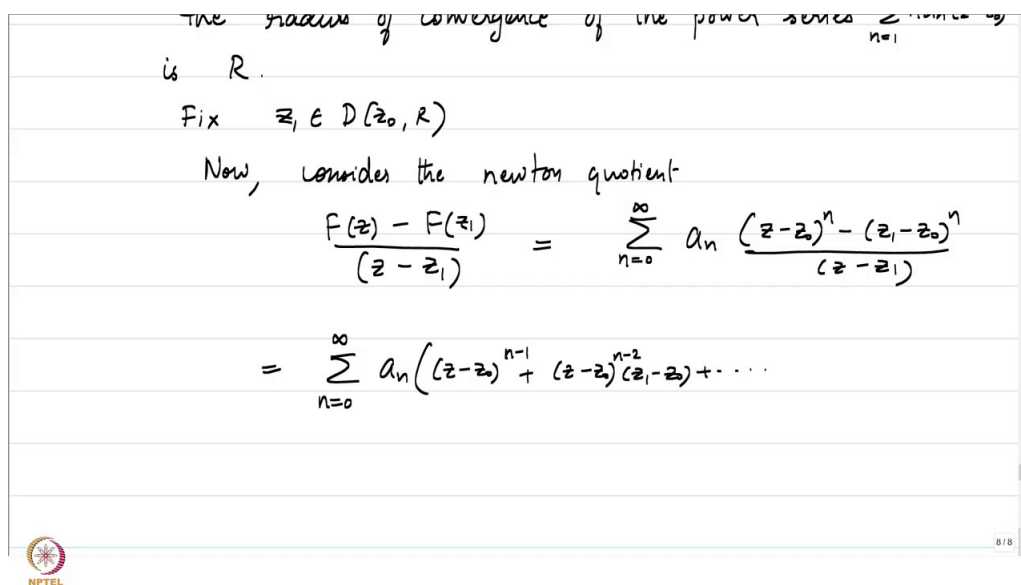 the radius of convergence of the power series ∑ n=1
is R.
Fix z₁ ∈ D(z₀, R)
Now, consider the newton quotient
(F(z) − F(z₁)) / (z − z₁) = ∑_{n=0}^{∞} aₙ ((z−z₀)ⁿ − (z₁−z₀)ⁿ) / (z−z₁)
= ∑_{n=0}^{∞} aₙ((z−z₀)^{n−1} + (z−z₀)^{n−2}(z₁−z₀) + ....
8/8
NPTEL